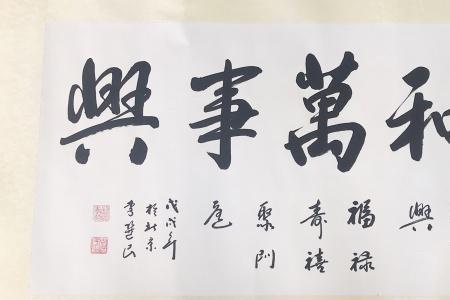 和萬事興
興
福祿
壽禧
聚門
庭
戊戌年
於北京